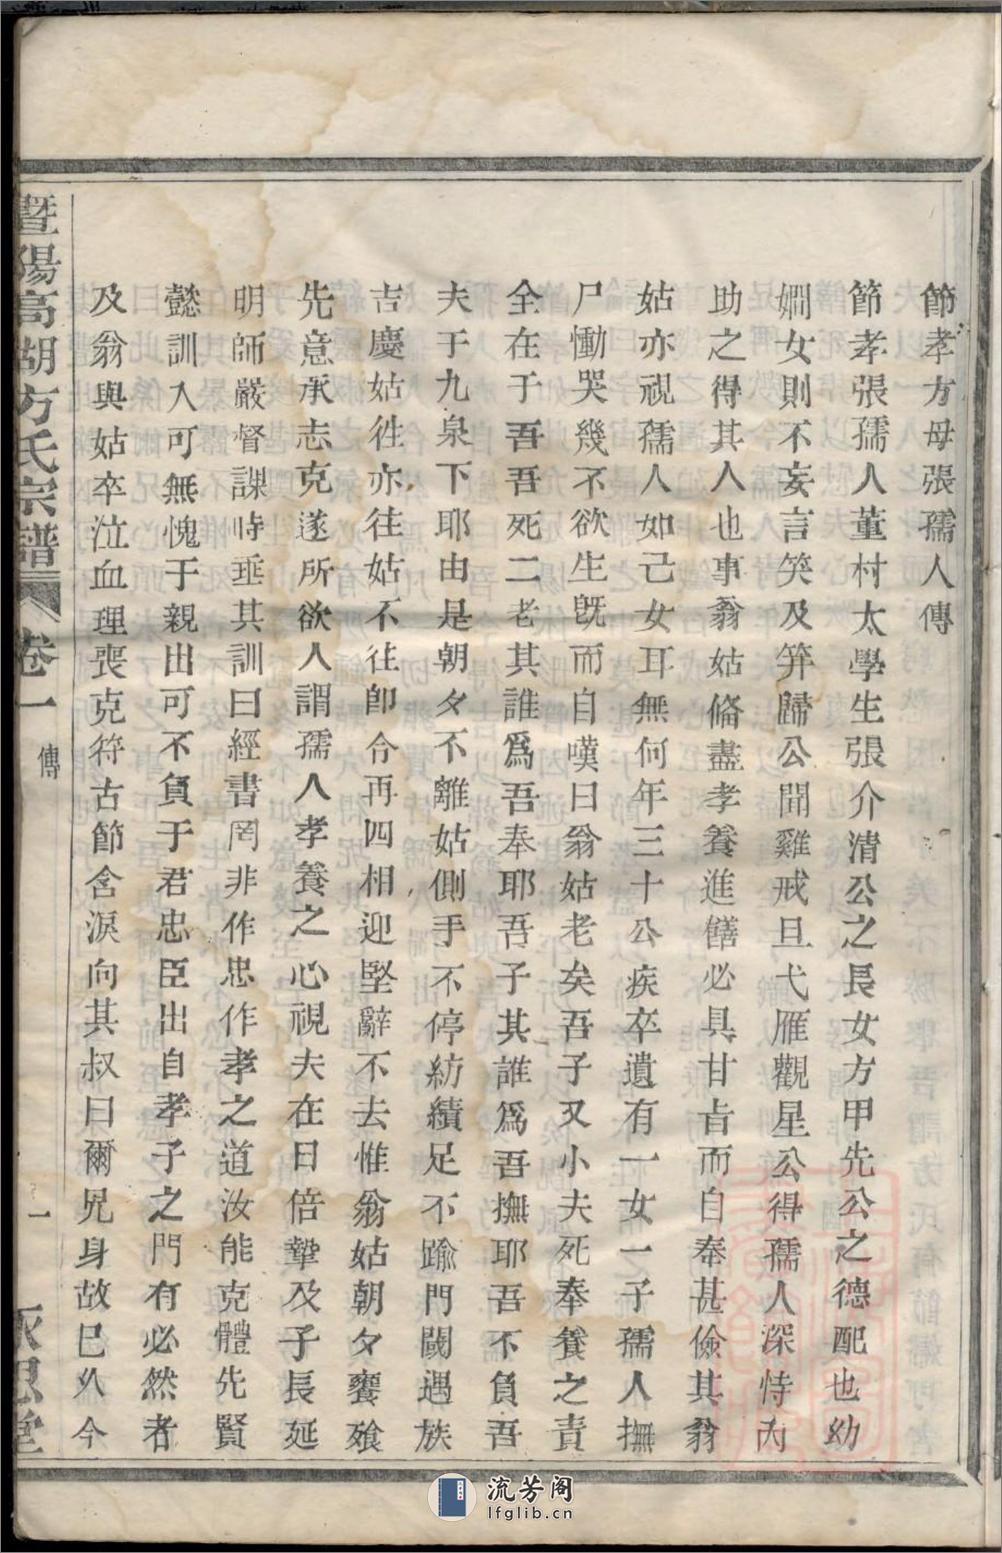 節孝方母張孺人傳
節孝張孺人董村太學生張介清公之長女方甲先公之德配也幼
嫻女則不妄言笑及笄歸公聞雞戒旦弋雁觀星公得孺人深恃內
助之得其人也事翁姑偹盡孝養進饍必具甘旨而自奉甚儉其翁
姑亦視孺人如己女耳無何年三十公疾卒遺有一女一子孺人撫
尸慟哭幾不欲生旣而自嘆曰翁姑老矣吾子又小夫死奉養之責
全在于吾吾死二老其誰爲吾奉耶吾子其誰爲吾撫耶吾不負吾
夫于九泉下耶由是朝夕不離姑側手不停紡績足不踰門閾遇族
吉慶姑徃亦往姑不往卽令再四相迎堅辭不去惟翁姑朝夕饔飱
先意承志克遂所欲人謂孺人孝養之心視夫在日倍摯及子長延
明師嚴督課時垂其訓曰經書罔非作忠作孝之道汝能克體先賢
懿訓入可無愧于親出可不負于君忠臣出自孝子之門有必然者
及翁與姑卒泣血理喪克符古節含淚向其叔曰爾兄身故已久今
暨陽高湖方氏宗譜 卷一 傳 一 永思堂
流芳阁
lfglib.cn